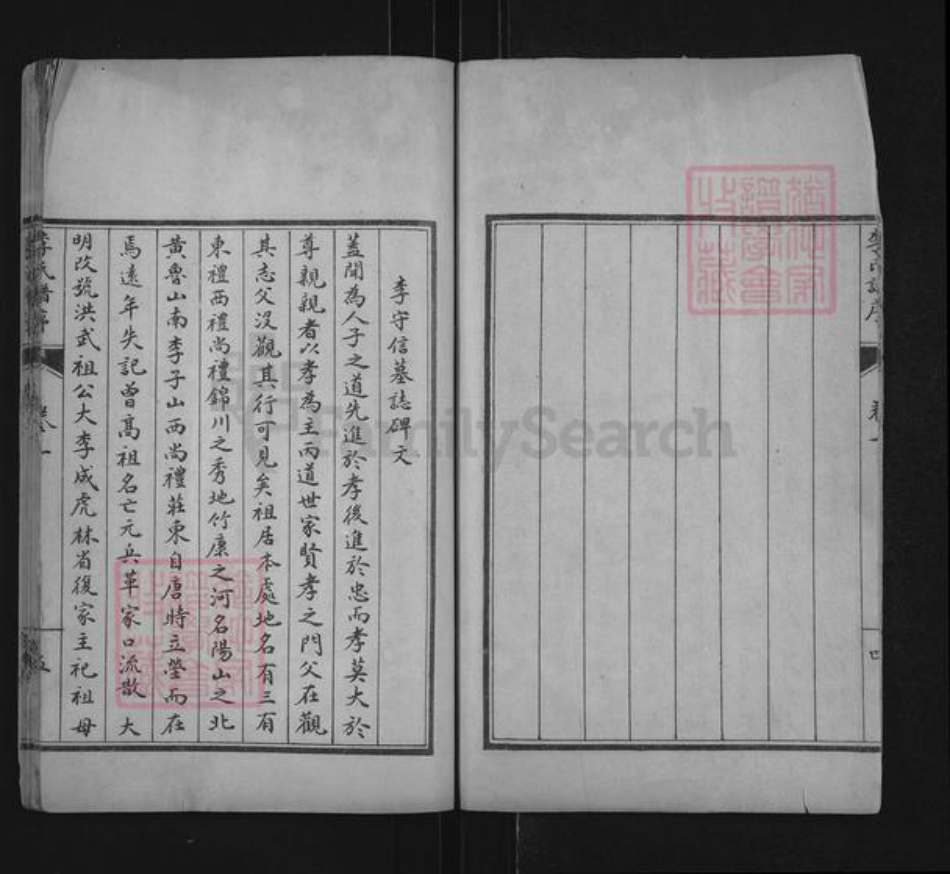 李氏譜序
卷一
四
李守信墓誌碑文
蓋聞為人子之道先進於孝後進於忠而孝莫大於
尊親親者以孝為主丙道世家賢孝之門父在觀
其志父沒觀其行可見矣祖居本處地名有三有
東禮西禮尚禮錦川之秀地竹廉之河名陽山之北
黃魯山南李子山西尚禮莊東自唐時立塋而在
焉遠年失記曾高祖名亡元兵革家口流散大
明改號洪武祖公大李成虎林省復家主祀祖母
李氏譜序
卷一
五
FamilySearch